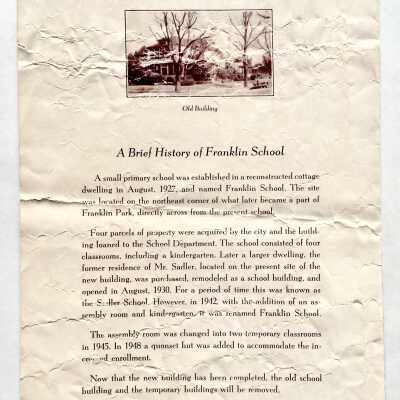 Old Building
A Brief History of Franklin School
A small primary school was established in a reconstructed cottage
dwelling in August, 1927, and named Franklin School. The site
was located on the northeast corner of what later became a part of
Franklin Park, directly across from the present school.
Four parcels of property were acquired by the city and the build-
ing loaned to the School Department. The school consisted of four
classrooms, including a kindergarten. Later a larger dwelling, the
former residence of Mr. Sadler, located on the present site of the
new building, was purchased, remodeled as a school building, and
opened in August, 1930. For a period of time this was known as
the Sadler School. However, in 1942, with the addition of an as-
sembly room and kindergarten, it was renamed Franklin School.
The assembly room was changed into two temporary classrooms
in 1945. In 1948 a quonset hut was added to accommodate the in-
creased enrollment.
Now that the new building has been completed, the old school
building and the temporary buildings will be removed.